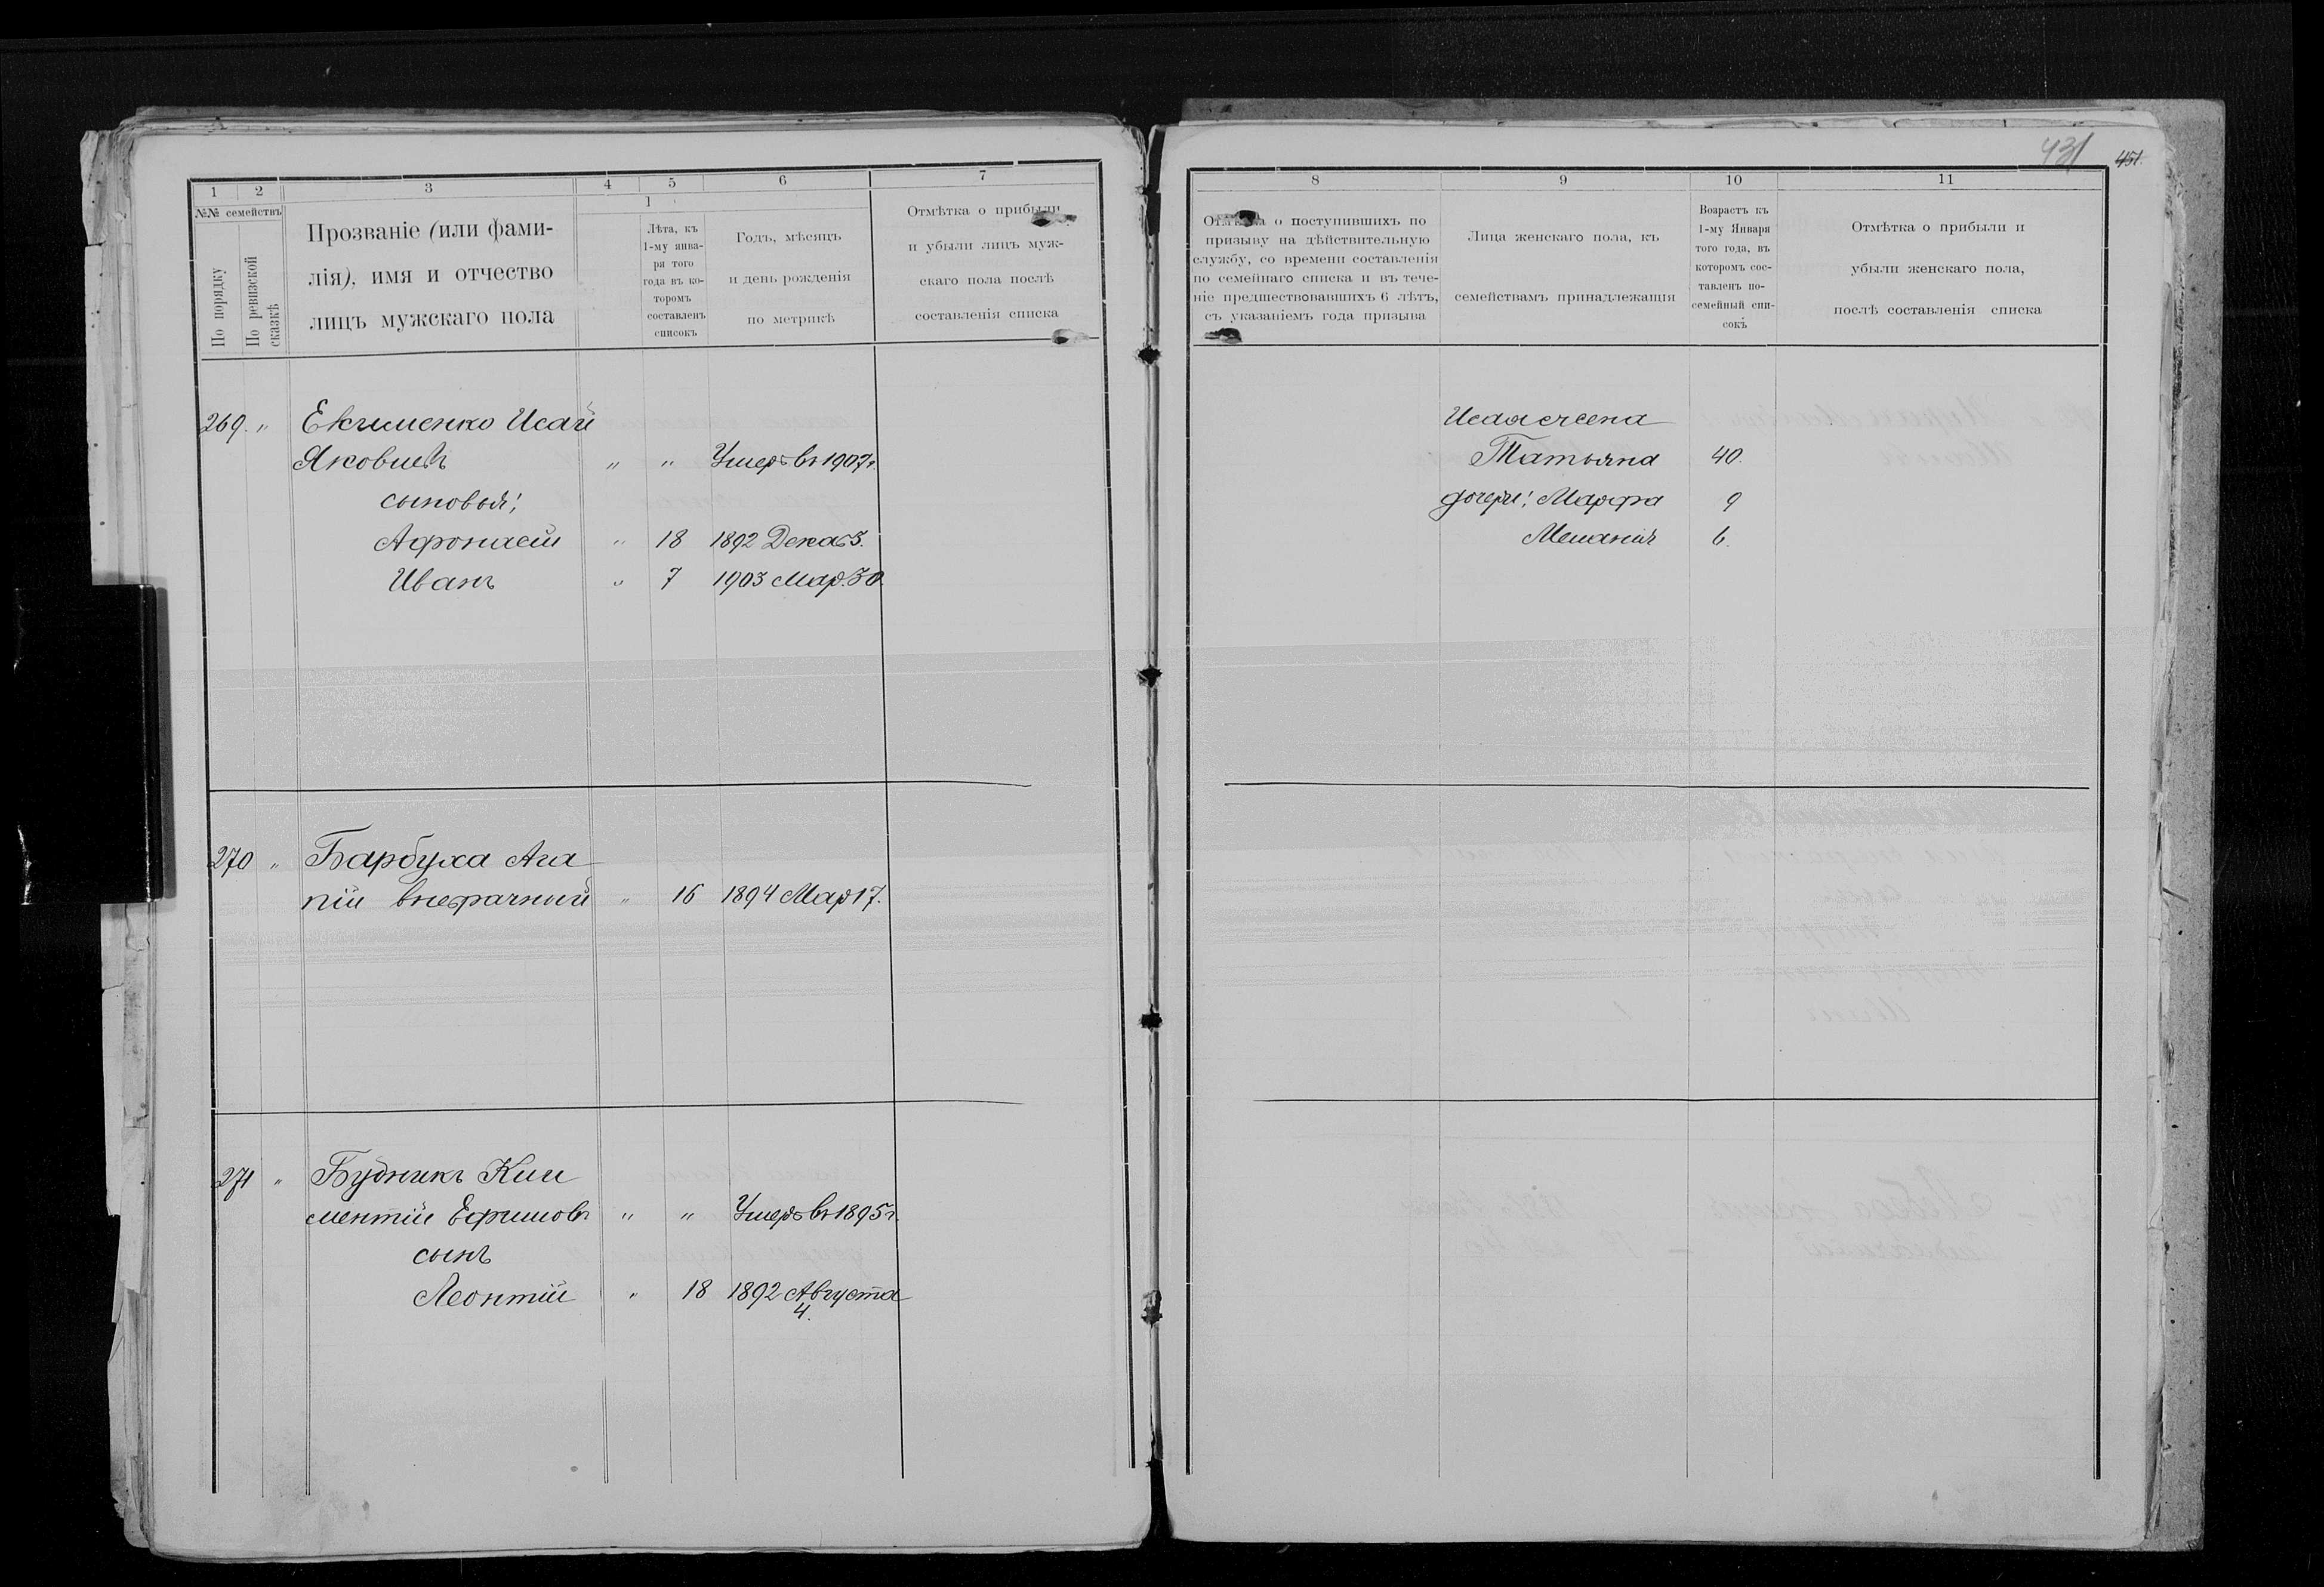 1 2 3 4 5 6 7
№№ семействъ
По порядку
По ревизской сказкѣ
Прозваніе (или фами-
лія), имя и отчество
лицъ мужскаго пола
1
Лѣта, къ
1-му янва-
ря того
года въ ко-
торомъ
составленъ
списокъ
Годъ, мѣсяцъ
и день рожденія
по метрикѣ
Отмѣтка о прибыли
и убыли лицъ муж-
скаго пола послѣ
составленія списка
269. „ Екименко Исай
Яковлевъ „ „ Умеръ въ 1907 г.
сыновья:
Афонасій „ 18 1892 Декаб 3.
Иванъ „ 7 1903 Мар. 30.
270 „ Барбуха Ага
пій внебрачный „ 16 1894 Мар 17.
271 „ Будникъ Кли
ментій Ефимовъ „ „ Умеръ въ 1895 г.
сынъ
Леонтій „ 18 1892 Августа
4.
431 451.
8 9 10 11
Отмѣтка о поступившихъ по
призыву на дѣйствительную
службу, со времени составленія
по семейнаго списка и въ тече-
ніе предшествовавшихъ 6 лѣтъ,
съ указаніемъ года призыва
Лица женскаго пола, къ
семействамъ принадлежащія
Возрастъ къ
1-му Января
того года, въ
которомъ сос-
тавленъ по-
семейный спи-
сокъ
Отмѣтка о прибыли и
убыли женскаго пола,
послѣ составленія списка
Исая жена
Татьяна 40.
дочери: Марфа 9
Меланія 6.